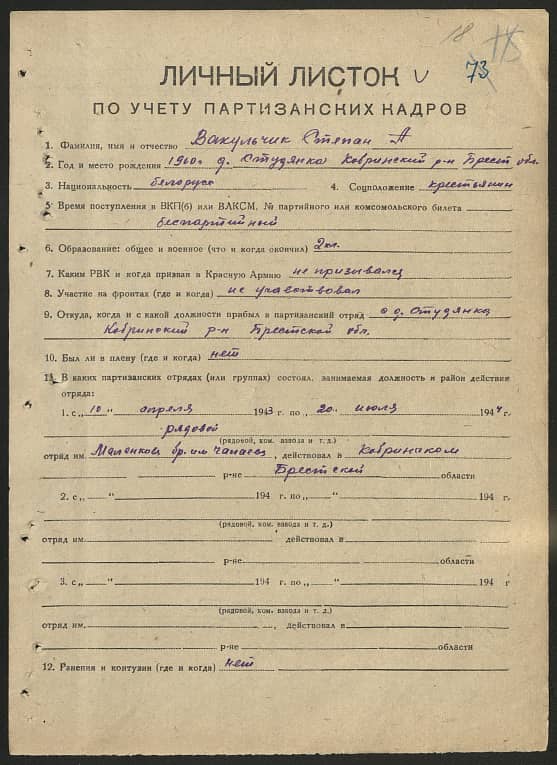 18
73
ЛИЧНЫЙ ЛИСТОК
ПО УЧЕТУ ПАРТИЗАНСКИХ КАДРОВ
1. Фамилия, имя и отчество Вакульчик Степан А
2. Год и место рождения 1900г д. Студянка Кобринский р-н Брест обл.
3. Национальность белорусс 4. Соцположение крестьянин
5. Время поступления в ВКП(б) или ВЛКСМ, № партийного или комсомольского билета
беспартийный
6. Образование: общее и военное (что и когда окончил) 2кл.
7. Каким РВК и когда призван в Красную Армию не призывалсь
8. Участие на фронтах (где и когда) не участвовал
9. Откуда, когда и с какой должности прибыл в партизанский отряд с д. Студянка
Кобринский р-н Брестской обл.
10. Был ли в плену (где и когда) нет
11. В каких партизанских отрядах (или группах) состоял, занимаемая должность и район действия
отряда:
1. с „ 10 „ апреля 1943 г. по „ 20 „ июля 1944 г.
рядовой
(рядовой, ком. взвода и т. д.)
отряд им. Маленкова бр. им Чапаева, действовал в Кобринском
р-не Брестской области
2. с „ “ 194 г. по „ “ 194 г.
(рядовой, ком. взвода и т. д.)
отряд им. , действовал в
р-не области
3. с „ “ 194 г. по „ “ 194 г
(рядовой, ком. взвода и т. д.)
отряд им. , действовал в
р-не области
12. Ранения и контузии (где и когда) нет